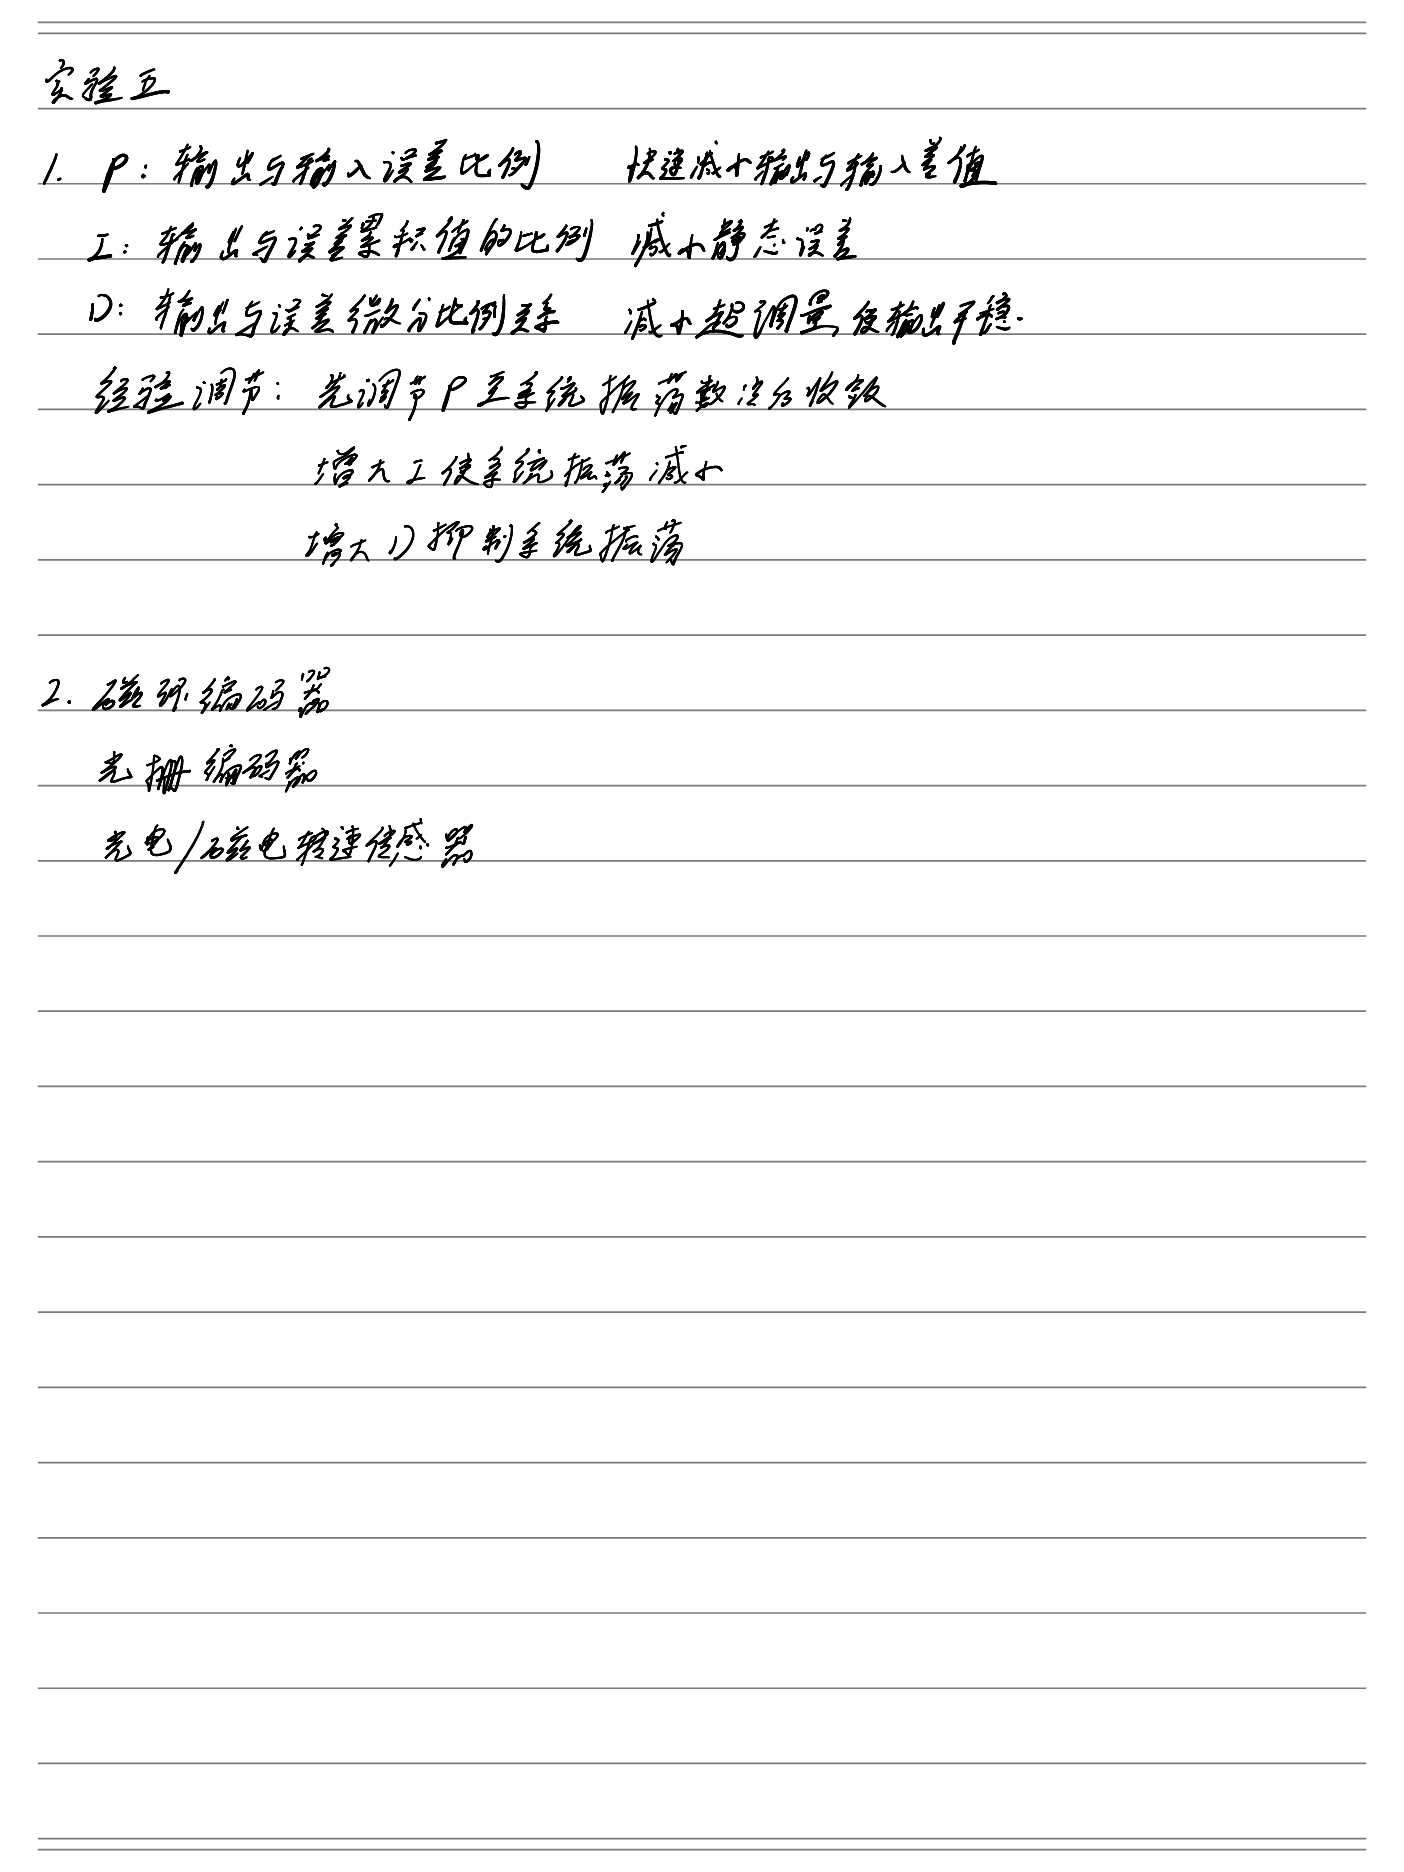 实验五
1. P：输出与输入误差比例 快速减小输出与输入差值
I：输出与误差累积值的比例 减小静态误差
D：输出与误差微分比例关系 减小超调量,使输出平稳.
经验调节：先调节P至系统振荡数次后收敛
增大I使系统振荡减小
增大D抑制系统振荡
2. 磁环编码器
光栅编码器
光电/磁电转速传感器